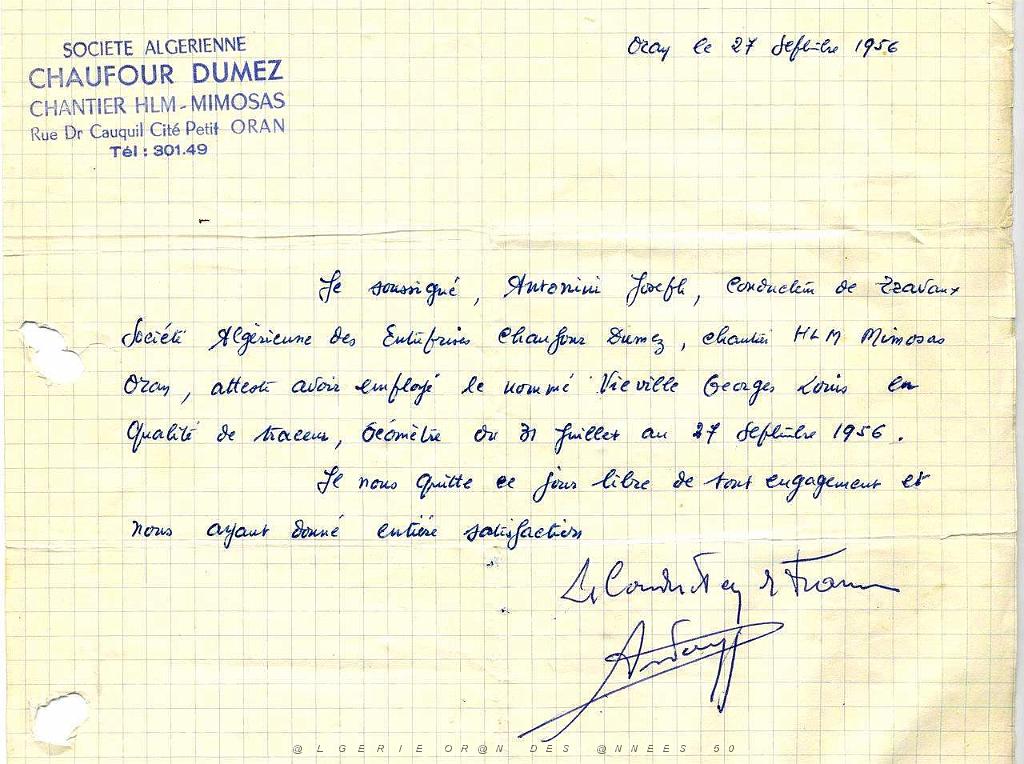 SOCIETE ALGERIENNE
CHAUFOUR DUMEZ
CHANTIER HLM-MIMOSAS
Rue Dr Cauquil Cité Petit ORAN
Tél : 301.49
Oran le 27 Septembre 1956
Je soussigné, Antonini Joseph, Conducteur de Travaux
Société Algérienne des Entreprises Chaufour Dumez, chantier HLM Mimosas
Oran, atteste avoir employé le nommé Vieville Georges Louis en
Qualité de traceur, Géomètre du 31 Juillet au 27 Septembre 1956.
Je nous quitte ce jour libre de tout engagement et
nous ayant donné entière satisfaction
Le Conducteur de Travaux
@LGERIE OR@N DES @NNEES 50